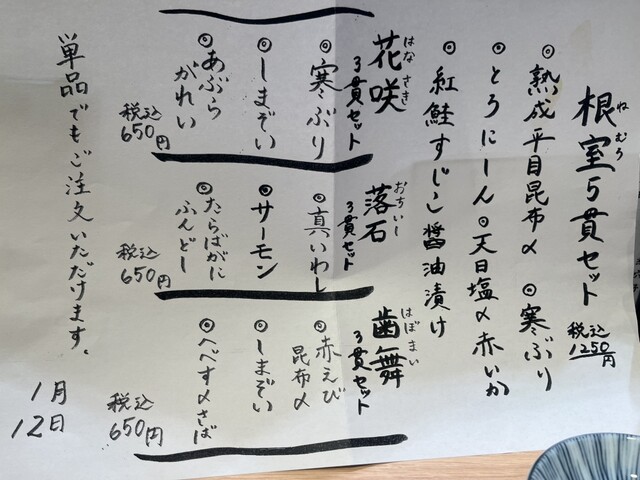 根室5貫セット 税込1250円
ねむろ
◎熟成平目昆布〆 ◎寒ぶり
◎とろにしん ◎天日塩〆赤いか
◎紅鮭すじこ醤油漬け
花咲 3貫セット
はなさき
◎寒ぶり
◎しまぞい
◎あぶらがれい
税込650円
落石 3貫セット
おちいし
◎真いわし
◎サーモン
◎たらばがにふんどし
税込650円
歯舞 3貫セット
はぼまい
◎赤えび昆布〆
◎しまぞい
◎へべす〆さば
税込650円
単品でもご注文いただけます。
1月12日